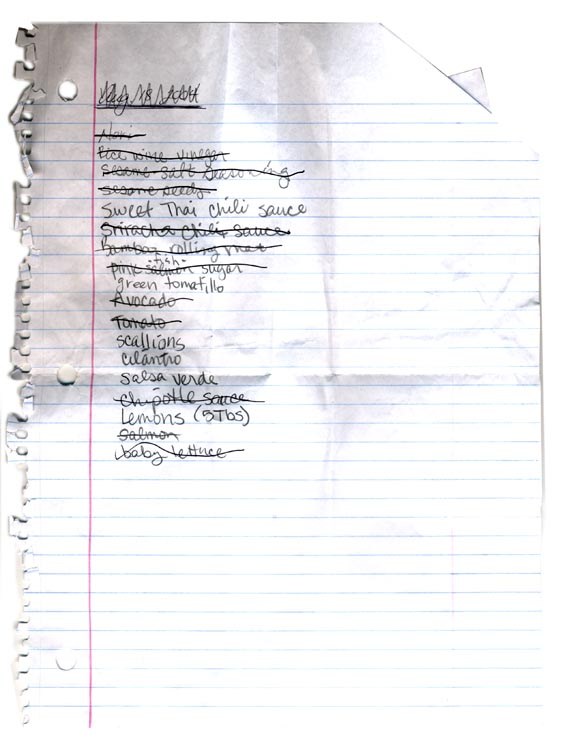 Nori
Rice wine vinegar
Sesame Salt Seasoning
sesame seeds
Sweet Thai chili sauce
Sriracha Chili Sauce
Bamboo rolling mat
fish
pink salmon sugar
green tomatillo
Avocado
Tomato
scallions
cilantro
salsa verde
chipotle sauce
Lemons (5Tbs)
Salmon
baby lettuce